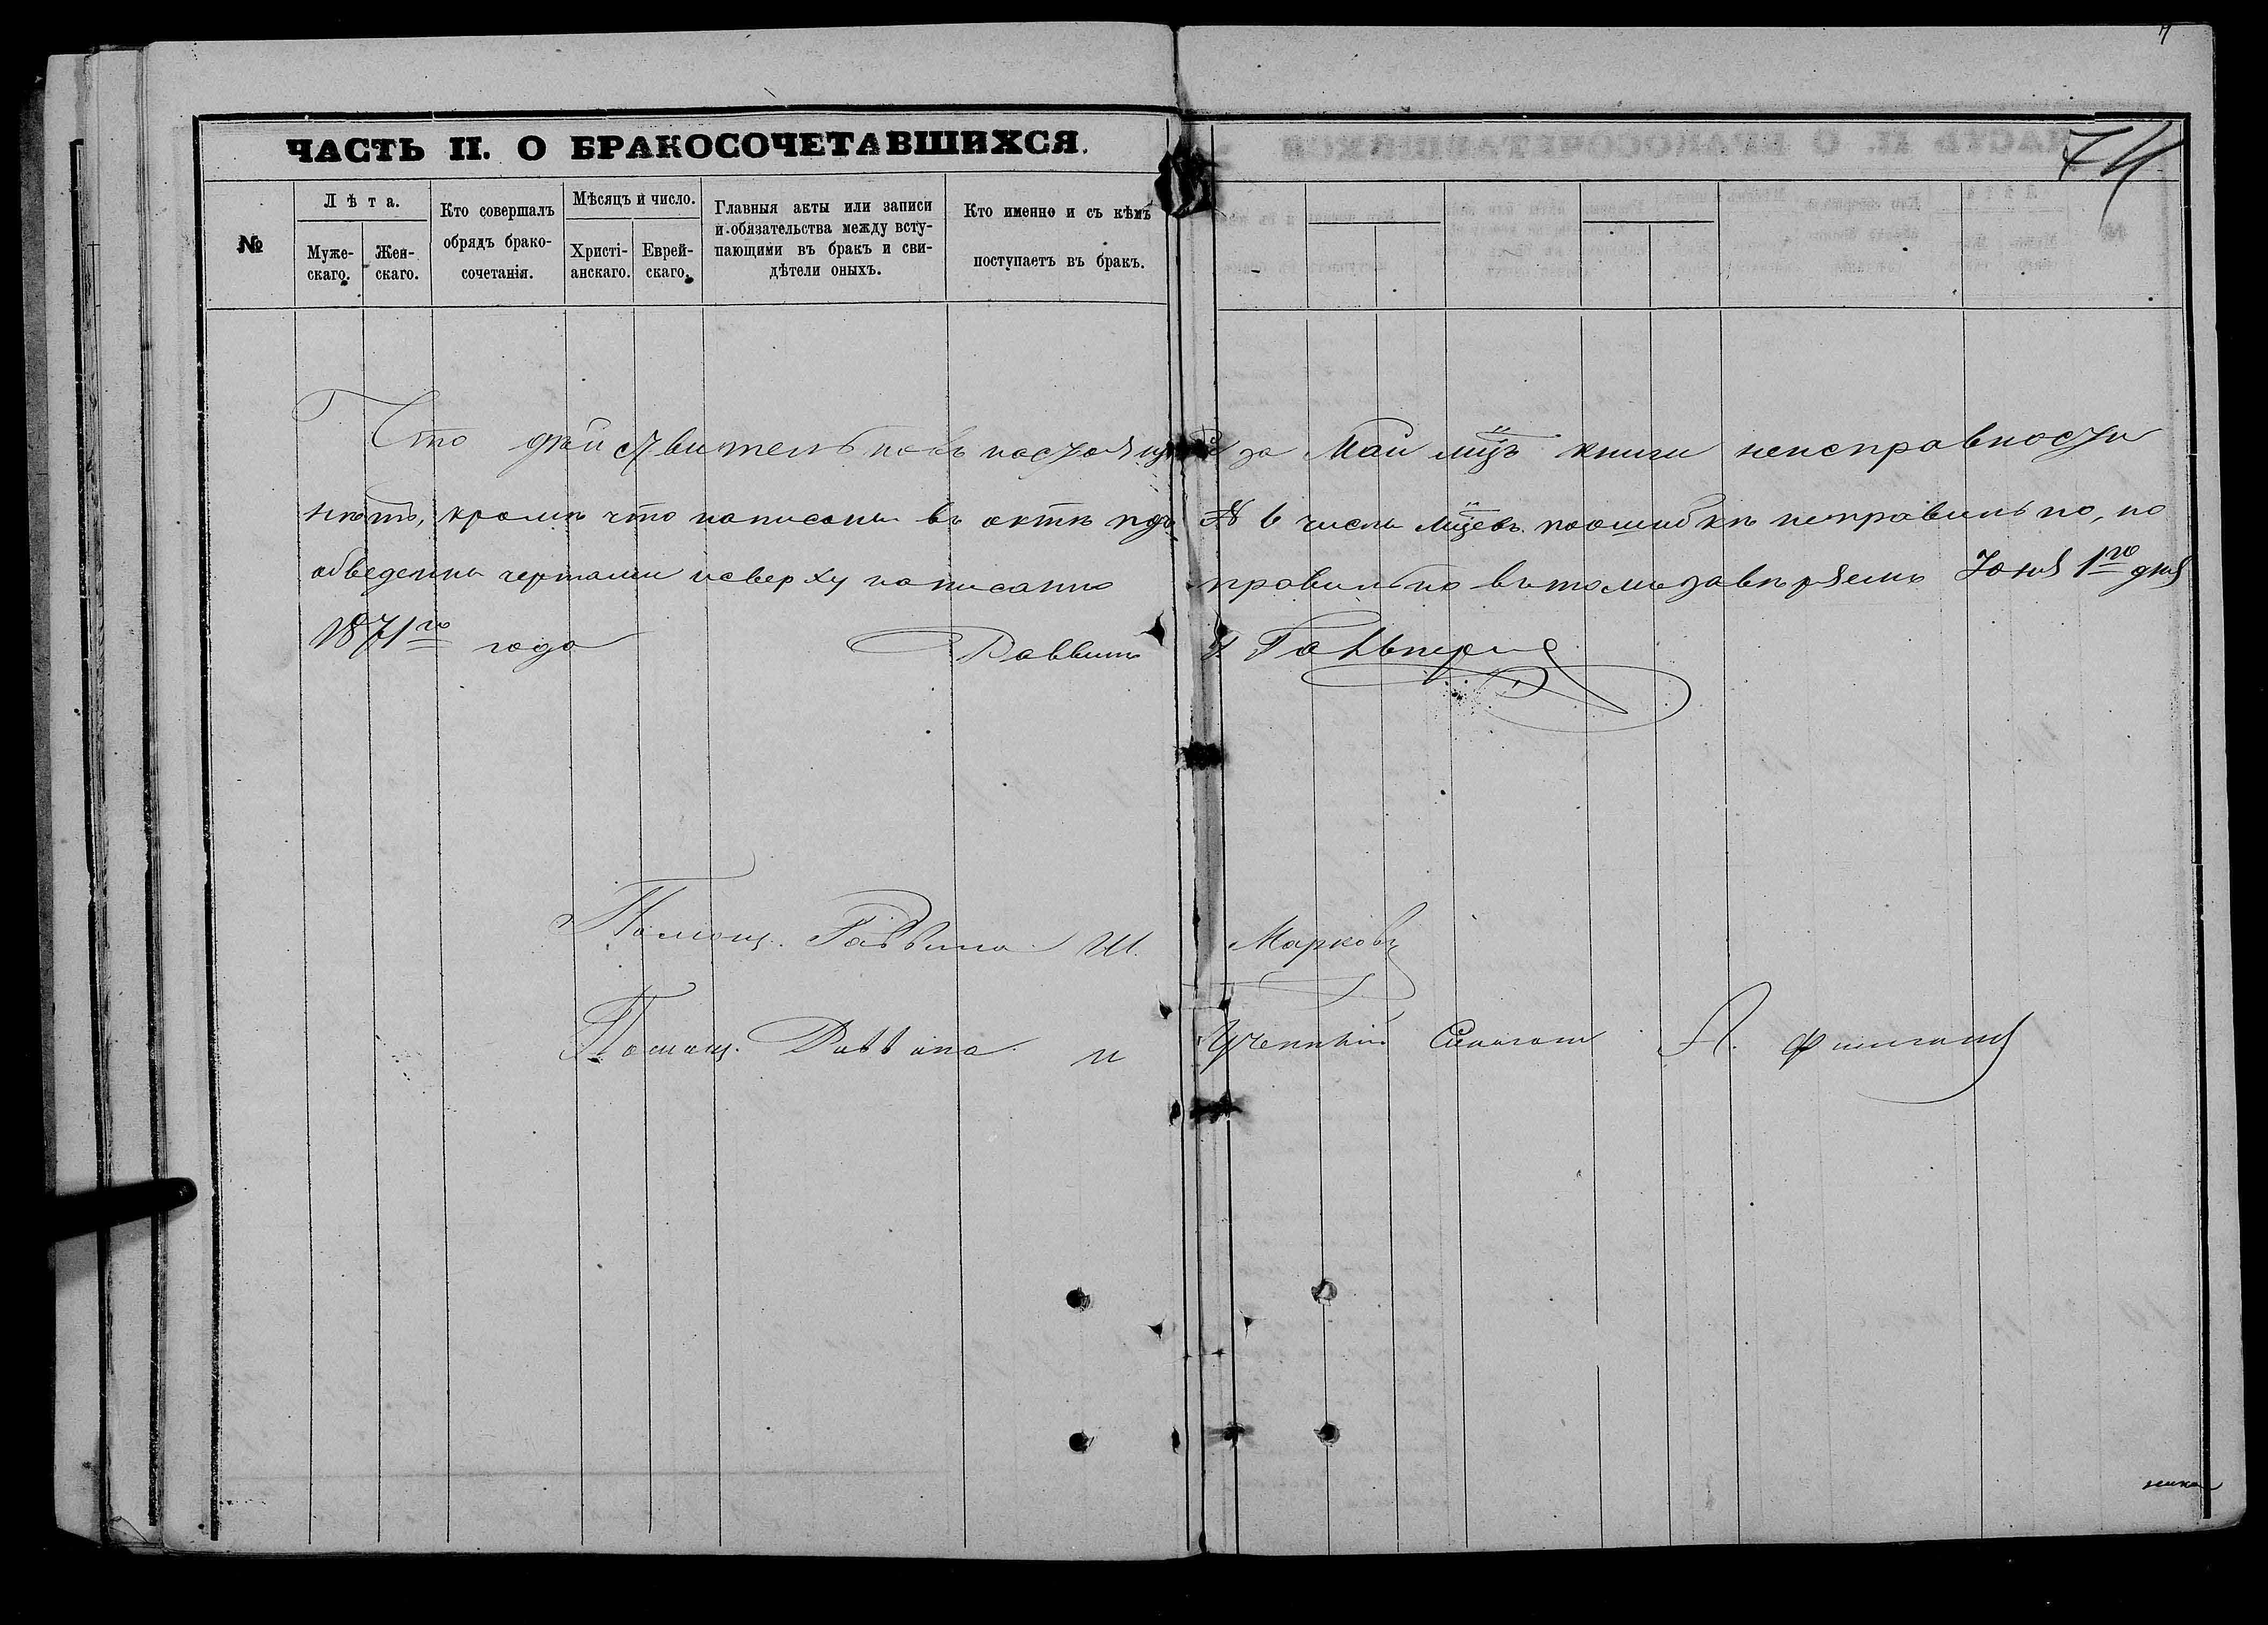 74
ЧАСТЬ II. О БРАКОСОЧЕТАВШИХСЯ.
№
Лѣта.
Муже-
скаго.
Жен-
скаго.
Кто совершалъ
обрядъ брако-
сочетанія.
Мѣсяцъ и число.
Христі-
анскаго.
Еврей-
скаго.
Главныя акты или записи
и обязательства между всту-
пающими въ бракъ и сви-
дѣтели оныхъ.
Кто именно и съ кѣмъ
поступаетъ въ бракъ.
Что дѣйствительно въ настоящей за Май мцъ книги неисправности
нѣтъ, кромѣ что написаны въ актѣ подъ № 6 числа мцевъ по ошибкѣ неправильно, но
обведены чертами и сверху написано правильно въ томъ завѣряемъ Іюня 1го дня
1871го года Раввинъ Гальперн
Помощ. Раввина Ш. Марковъ
Помощ. Раввина и Ученный А.